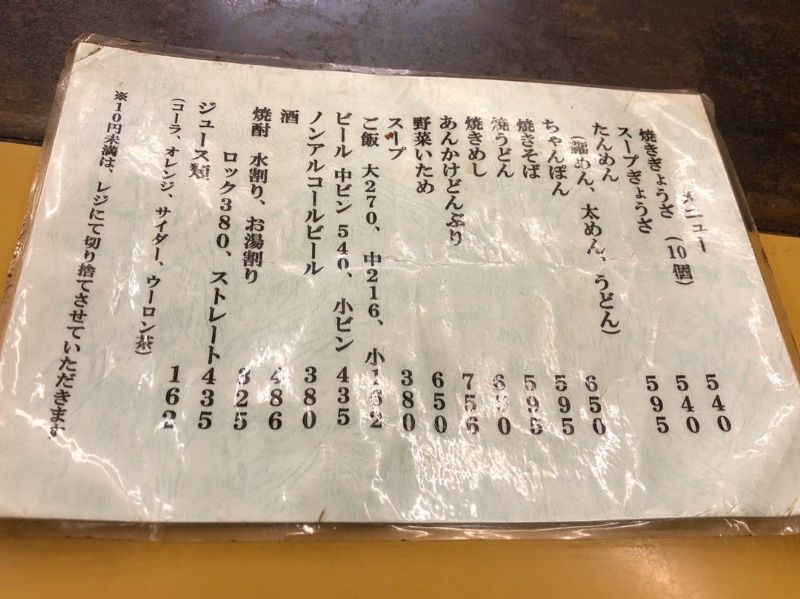 メニュー
焼きぎょうざ (10個) 540
スープぎょうざ 540
たんめん 595
めん、太めん、うどん)
ちゃんぽん 650
焼きそば 595
焼うどん 595
焼きめし
あんかけどんぶり 756
野菜いため 650
スープ 380
ご飯 大270、中216、小162
ビール 中ビン 540、小ビン 435
ノンアルコールビール 380
酒 486
焼酎 水割り、お湯割り 325
ロック380、ストレート 435
ジュース類 162
(コーラ、オレンジ、サイダー、ウーロン茶)
※10円未満は、レジにて切り捨てさせていただきます